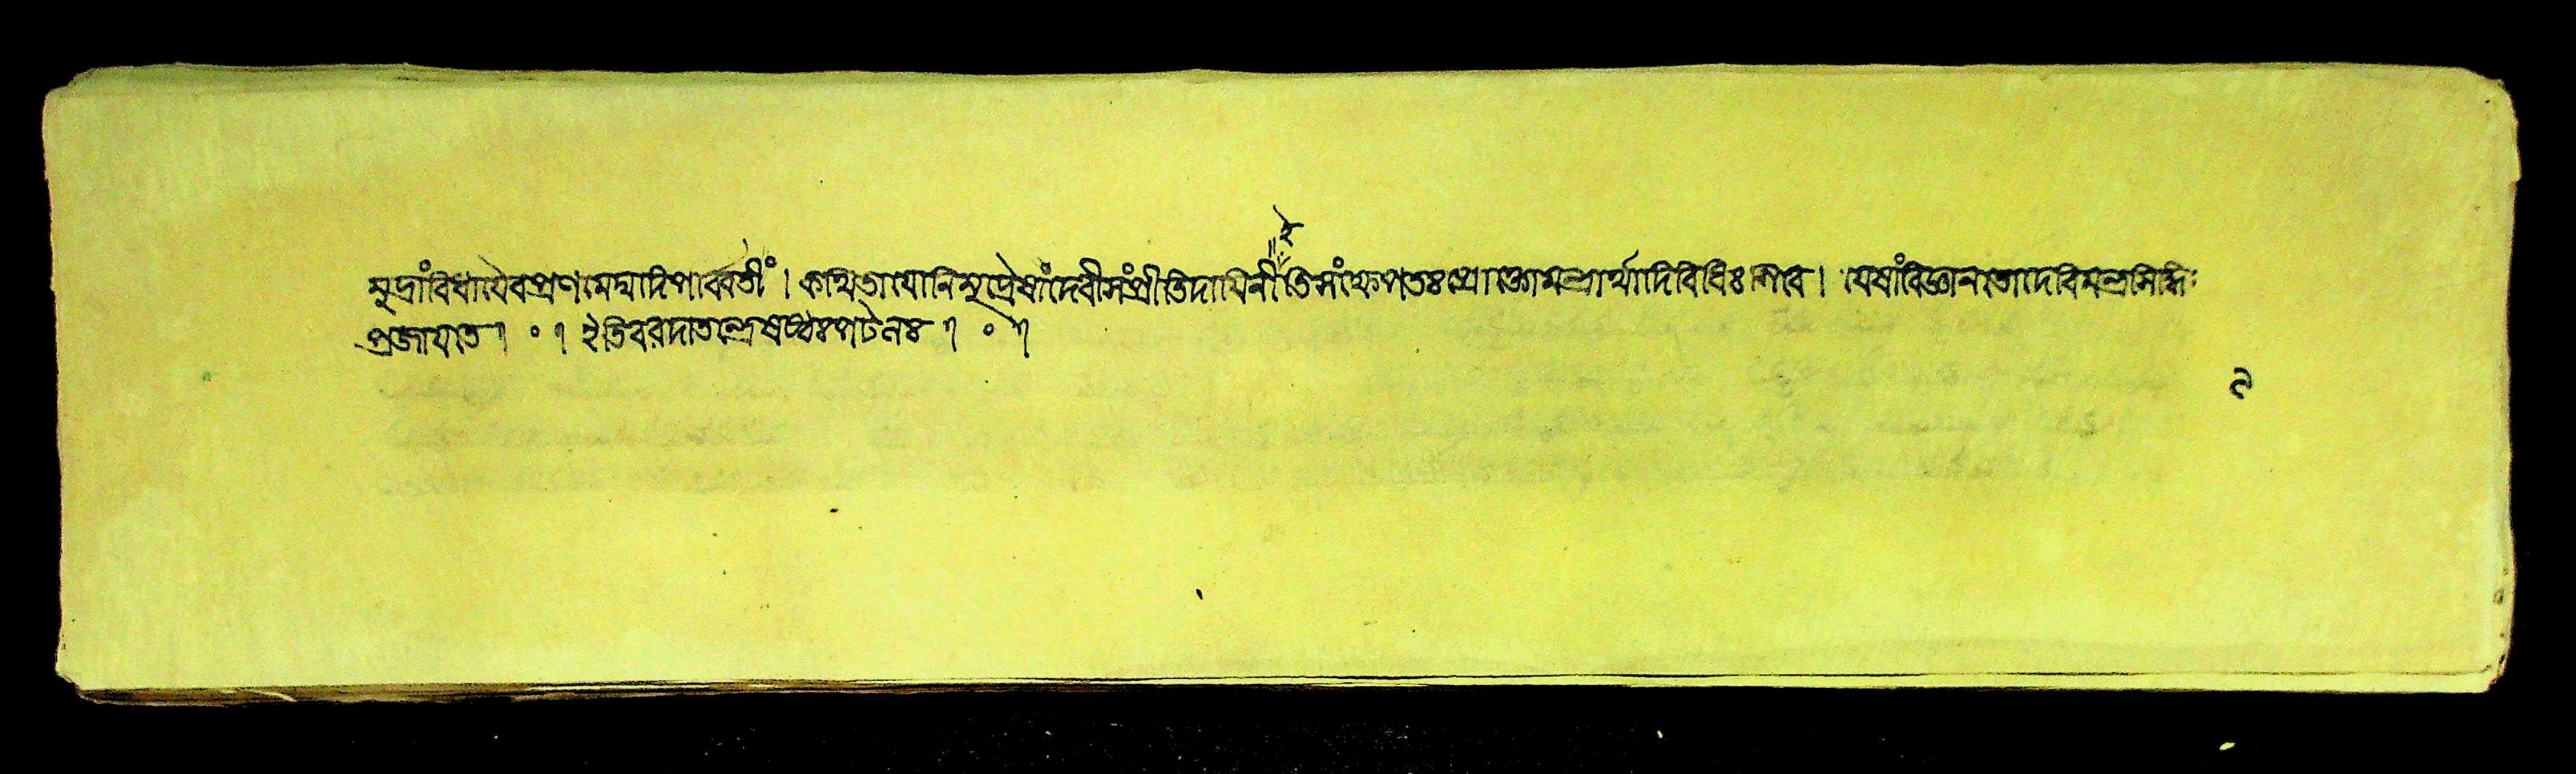 মুদ্রাংবিধায়ৈবপ্রণমেম্মাদিপার্ব্বতীং। কথিতাযোনিমুদ্রেষাংদেবীসংপ্রীতিদায়িনী ইতিসংক্ষেপতঃপ্রোক্তোমন্ত্রার্থাদিবিধিঃশিবে। যেষাংবিজ্ঞানতোদেবিমন্ত্রসিদ্ধিঃ
প্রজায়তে। ॰ । ইতিবরদাতন্ত্রেষষ্ঠঃপটলঃ। ॰ ।
৯